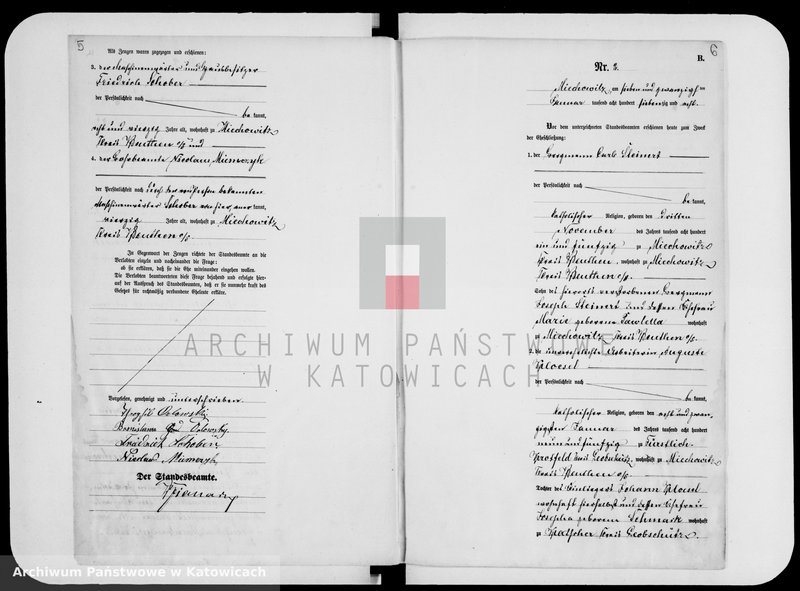 5
Als Zeugen waren zugezogen und erschienen:
3. der Maschinenwärter und Hausbesitzer
Friedrich Schober
der Persönlichkeit nach
be kannt,
acht und vierzig Jahre alt, wohnhaft zu Miechowitz
Kreis Beuthen o/s und
4. der
der Persönlichkeit nach durch den
Maschinenwärter Schober
vierzig Jahre alt, wohnhaft zu Miechowitz
Kreis Beuthen o/s.
In Gegenwart der Zeugen richtete der Standesbeamte an die
Verlobten einzeln und nacheinander die Frage:
ob sie erklären, daß sie die Ehe miteinander eingehen wollen.
Die Verlobten beantworteten diese Frage bejahend und erfolgte hier-
auf der Ausspruch des Standesbeamten, daß er sie nunmehr kraft des
Gesetzes für rechtmäßig verbundene Eheleute erkläre.
Vorgelesen, genehmigt und unterschrieben
Friedrich Schober
Der Standesbeamte.
6
B.
Nr. 3.
Miechowitz am sieben und zwanzigsten
Januar tausend acht hundert siebenzig und acht.
Vor dem unterzeichneten Standesbeamten erschienen heute zum Zweck
der Eheschließung:
1. der Bergmann Carl Steinert
der Persönlichkeit nach
be kannt,
katholischer Religion, geboren den dritten
November des Jahres tausend acht hundert
ein und fünfzig zu Miechowitz
Kreis Beuthen, wohnhaft zu Miechowitz
Kreis Beuthen o/s.
Sohn des hierorts verstorbenen Bergmann
Joseph Steinert und dessen Ehefrau
Marie geborene Pawlella wohnhaft
zu Miechowitz Kreis Beuthen o/s.
2. die unverehelichte Arbeiterin Auguste
der Persönlichkeit nach
be kannt,
katholischer Religion, geboren den acht und zwan-
zigsten Januar des Jahres tausend acht hundert
neun und fünfzig zu
Kreis Leobschütz, wohnhaft zu Miechowitz
Kreis Beuthen o/s.
Tochter des Johann
wohnhaft hierselbst und dessen Ehefrau
Josepha geborene Schmack wohnhaft
zu Katscher Kreis Leobschütz.
ARCHIWUM PAŃSTWOWE
W KATOWICACH
Archiwum Państwowe w Katowicach